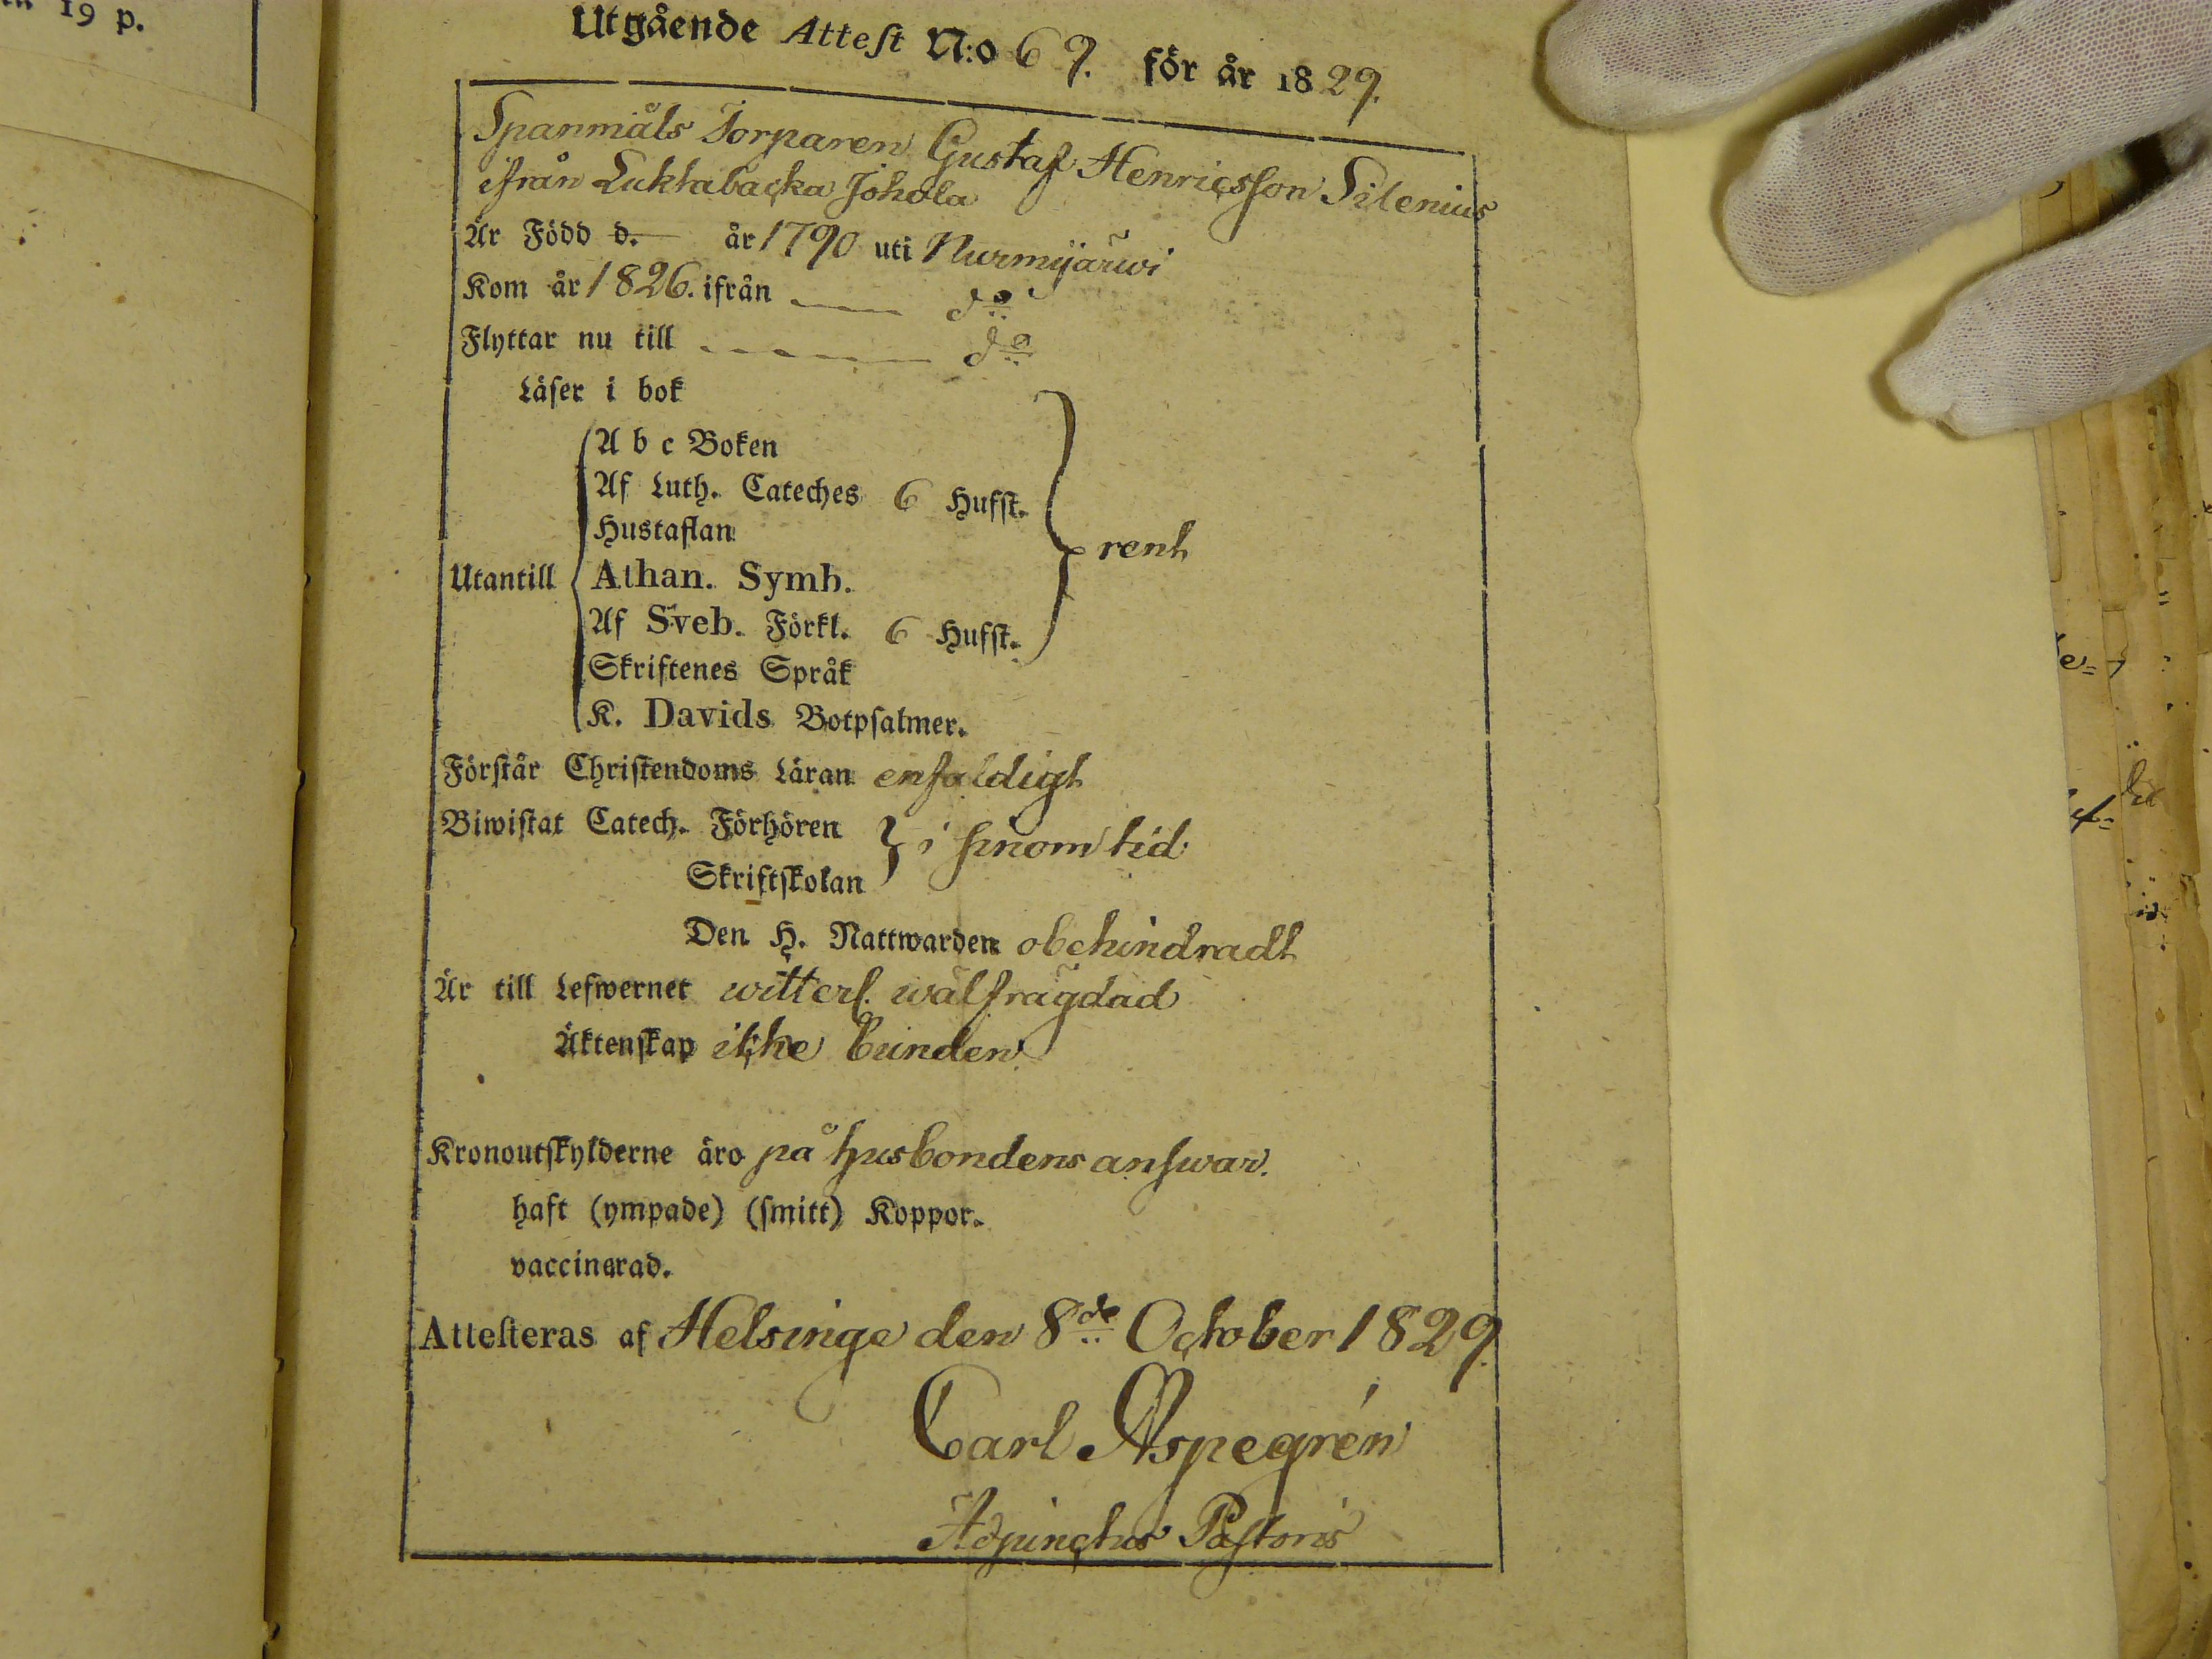 19 p.
Utgående Attest N:o 69. för år 1829.
Spanmåls Torparen Gustaf Henricsson Silenius
ifrån Lukkabacka Johola
Är Född d. — år 1790 uti Nurmijärwi
Kom år 1826. ifrån — do
Flyttar nu till — do
Läser i bok
A b c Boken
Af Luth. Cateches 6 Hufst.
Hustaflan
rent
Utantill
Athan. Symb.
Af Sveb. Förkl. 6 Hufst.
Skriftenes Språk
K. Davids Botpsalmer.
Förstår Christendoms Läran enfaldigt
Biwistat Catech. Förhören } i sinom tid
Skriftskolan
Den H. Nattwarden obehindradt
Är till Lefwernet witterl. wälfrägdad
Äktenskap icke bunden
Kronoutskylderne äro på husbondens answar.
haft (ympade) (smitt) Koppor.
vaccinerad.
Attesteras af Helsinge den 8de October 1829.
Carl Aspegrén
Adjunctus Pastoris